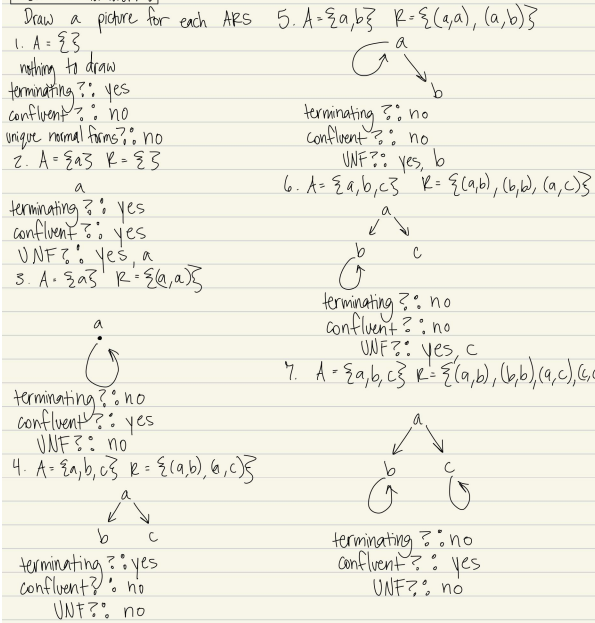 Draw a picture for each ARS
1. A = {}
nothing to draw
terminating?: yes
confluent?: no
unique normal forms?: no
2. A = {a} R = {}
a
terminating?: yes
confluent?: yes
UNF?: yes, a
3. A = {a} R = {(a,a)}
a
terminating?: no
confluent?: yes
UNF?: no
4. A = {a,b,c} R = {(a,b), (a,c)}
a
b c
terminating?: yes
confluent?: no
UNF?: no
5. A = {a,b} R = {(a,a), (a,b)}
a
b
terminating?: no
confluent?: no
UNF?: yes, b
6. A = {a,b,c} R = {(a,b), (b,b), (a,c)}
a
b c
terminating?: no
confluent?: no
UNF?: yes, c
7. A = {a,b,c} R = {(a,b), (b,b), (a,c), (c,c
a
b c
terminating?: no
confluent?: yes
UNF?: no